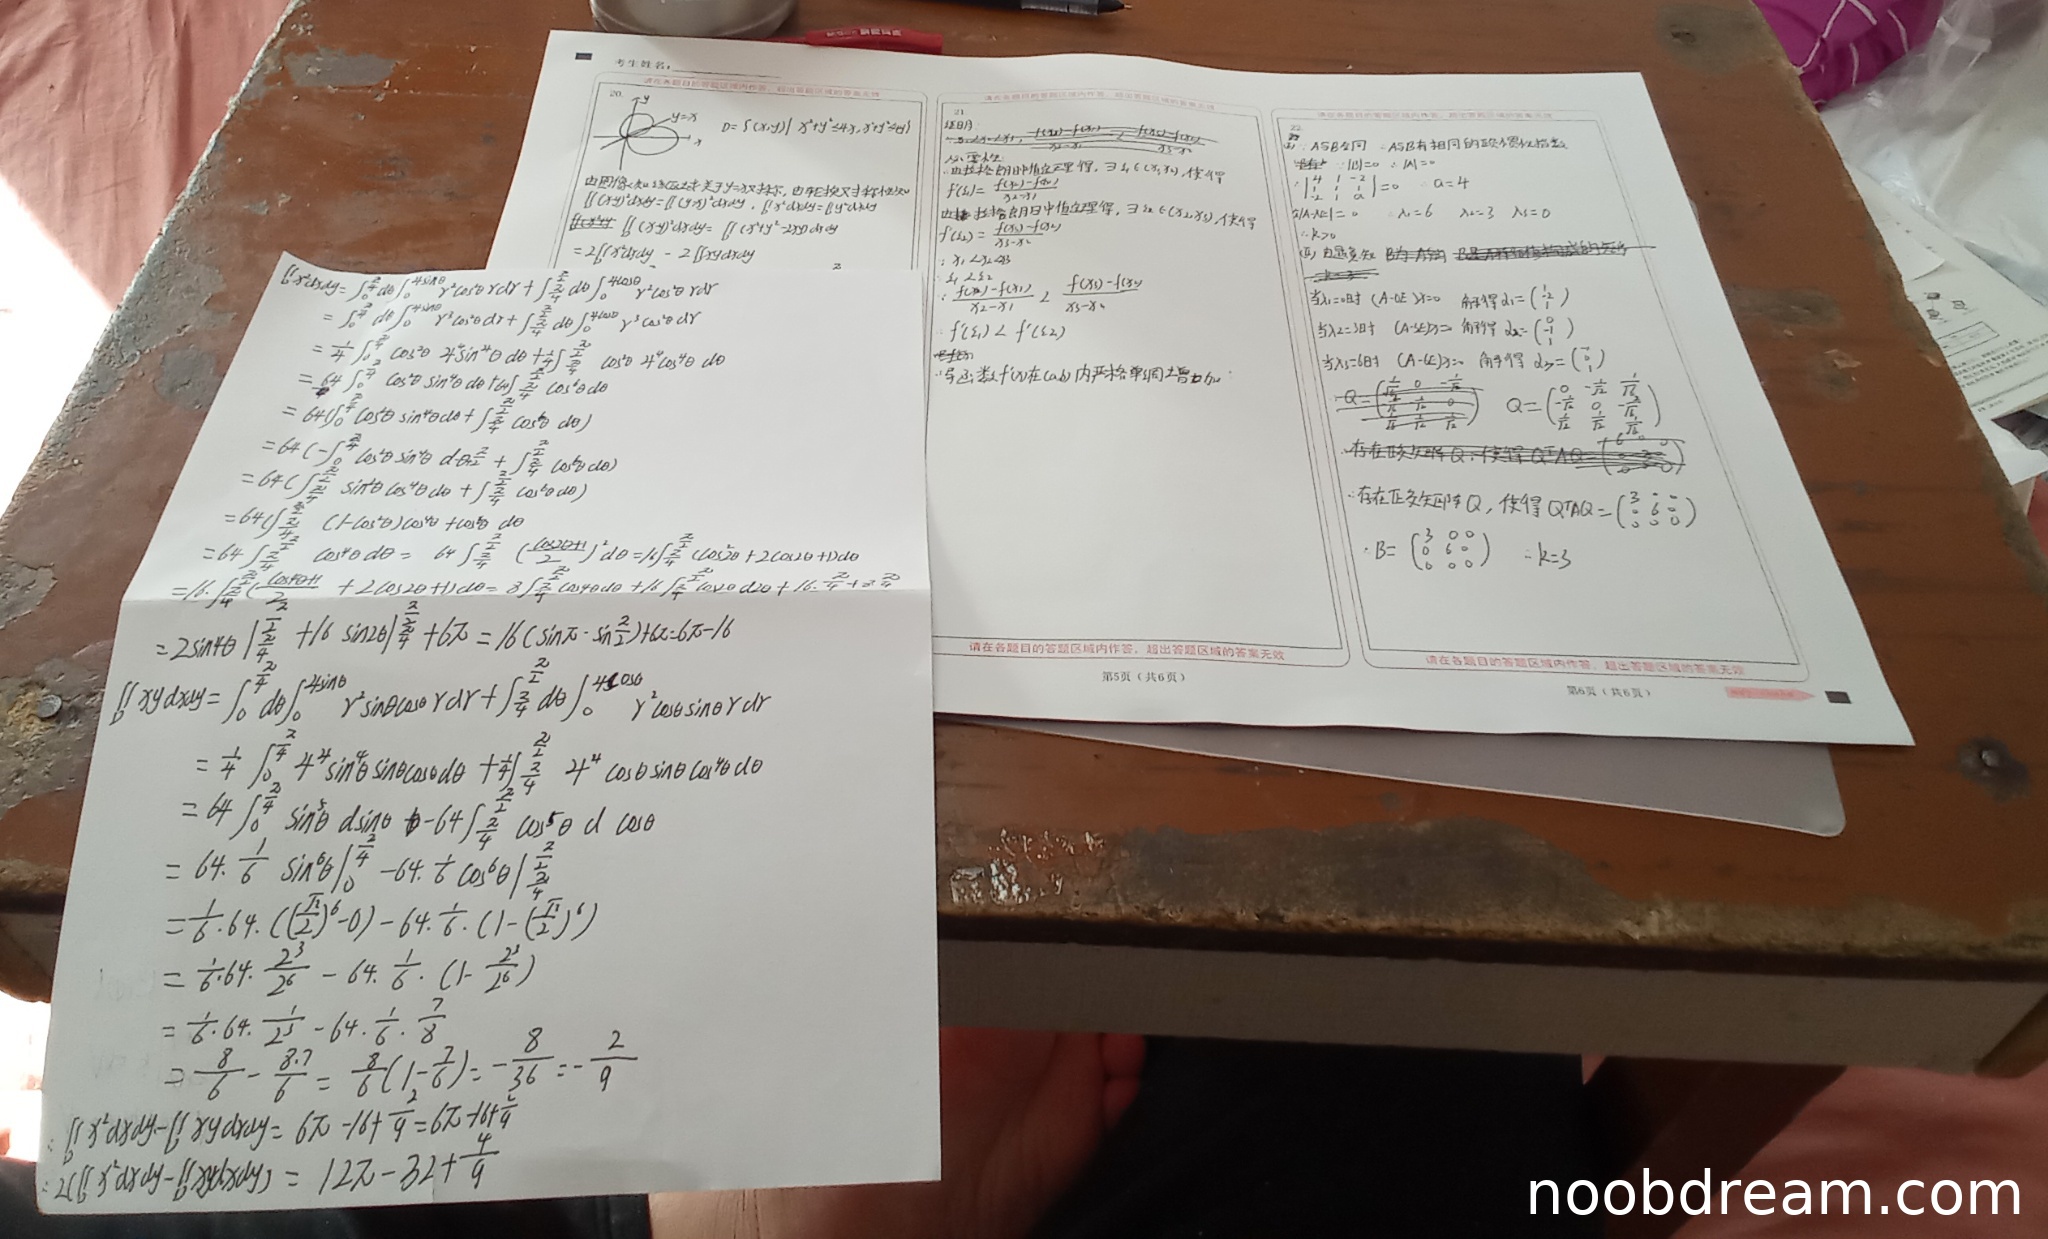 考生姓名:
请在各题目的答题区域内作答，超出答题区域的答案无效
20.
y
y=x
x
D={(x,y)| x²+y²≤4x, x²+y²≤4y}
∬(x-y)²dxdy=∬(y-x)²dxdy, ∬x²dxdy=∬y²dxdy
∬(x-y)²dxdy= ∬(x²+y²-2xy)dxdy
=2∬x²dxdy - 2∬xydxdy
∬x²dxdy=∫₀^(π/4)dθ∫₀^(4sinθ) r²cos²θ rdr+∫_(π/4)^(π/2)dθ∫₀^(4cosθ) r²cos²θ rdr
=∫₀^(π/4)dθ∫₀^(4sinθ) r³cos²θdr+∫_(π/4)^(π/2)dθ∫₀^(4cosθ) r³cos²θdr
=1/4∫₀^(π/4) cos²θ 4⁴sin⁴θ dθ+1/4∫_(π/4)^(π/2) cos²θ 4⁴cos⁴θ dθ
=64∫₀^(π/4) cos²θ sin⁴θ dθ+64∫_(π/4)^(π/2) cos⁶θdθ
=64(∫₀^(π/4) cos²θ sin⁴θdθ+∫_(π/4)^(π/2) cos⁶θ dθ)
=64(∫_(π/4)^(π/2) sin²θcos⁴θdθ+∫_(π/4)^(π/2) cos⁶θdθ)
=64(∫_(π/4)^(π/2) (1-cos²θ)cos⁴θ+cos⁶θ dθ
=64∫_(π/4)^(π/2) cos⁴θdθ= 64∫_(π/4)^(π/2) ((cos2θ+1)/2)²dθ=16∫_(π/4)^(π/2)(cos²2θ+2cos2θ+1)dθ
=16·∫_(π/4)^(π/2)((cos4θ+1)/2+2cos2θ+1)dθ=8∫_(π/4)^(π/2)cos4θdθ+16∫_(π/4)^(π/2)cos2θd2θ+16·π/4+8·π/4
=2sin4θ|_(π/4)^(π/2)+16 sin2θ|_(π/4)^(π/2)+6π=16(sinπ-sinπ/2)+6π=6π-16
∬_D xydxdy=∫₀^(π/4)dθ∫₀^(4sinθ) r²sinθcosθ rdr+∫_(π/4)^(π/2)dθ∫₀^(4cosθ) r²cosθsinθ rdr
=1/4∫₀^(π/4) 4⁴sin⁴θsinθcosθdθ+1/4∫_(π/4)^(π/2) 4⁴cosθsinθcos⁴θdθ
=64∫₀^(π/4) sin⁵θ dsinθ-64∫_(π/4)^(π/2) cos⁵θ d cosθ
=64·1/6 sin⁶θ|₀^(π/4)-64·1/6 cos⁶θ|_(π/4)^(π/2)
=1/6·64·((√2/2)⁶-0)-64·1/6·(1-(√2/2)⁶)
=1/6·64·2³/2⁶-64·1/6·(1-2³/2⁶)
=1/6·64·1/2³-64·1/6·7/8
=8/6-8·7/6=8/6(1-7/6)=-8/36=-2/9
∴∬_D x²dxdy-∬_D xydxdy=6π-16+2/9=6π-16+2/9
∴2(∬_D x²dxdy-∬_D xydxdy)=12π-32+4/9
请在各题目的答题区域内作答，超出答题区域的答案无效
21.
证明
必要性:
∴由拉格朗日中值定理得，∃ξ₁∈(x₁,x₂), 使得
f'(ξ₁)=(f(x₂)-f(x₁))/(x₂-x₁)
由拉格朗日中值定理得，∃ξ₂∈(x₂,x₃), 使得
f'(ξ₂)=(f(x₃)-f(x₂))/(x₃-x₂)
∵x₁<x₂<x₃
∴ξ₁<ξ₂
∵(f(x₂)-f(x₁))/(x₂-x₁) < (f(x₃)-f(x₂))/(x₃-x₂)
∴f'(ξ₁)<f'(ξ₂)
∴导函数f'(x)在(a,b)内严格单调增加.
请在各题目的答题区域内作答，超出答题区域的答案无效
第5页（共6页）
请在各题目的答题区域内作答，超出答题区域的答案无效
22.
∵A与B合同 ∴A与B有相同的正负惯性指数
∵|B|=0 ∴|A|=0
∴|4 1 -2; 1 1 1; -2 1 a|=0 ∴a=4
|A-λE|=0 ∴λ₁=6 λ₂=3 λ₃=0
∴k>0
当λ₁=0时 (A-0E)x=0 解得α₁=(1 -2 1)
当λ₂=3时 (A-3E)x=0 解得α₂=(0 -1 1)
当λ₃=6时 (A-6E)x=0 解得α₃=
Q=
∴存在正交矩阵Q，使得QᵀAQ=(3 0 0; 0 6 0; 0 0 0)
∴B=(3 0 0; 0 6 0; 0 0 0) ∴k=3
请在各题目的答题区域内作答，超出答题区域的答案无效
第6页（共6页）
noobdream.com